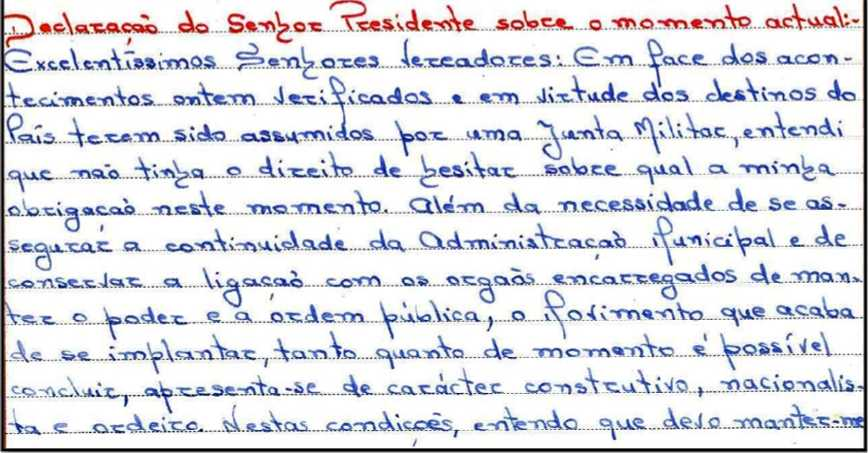 Declaração do Senhor Presidente sobre o momento actual:-
Excelentíssimos Senhores Vereadores: Em face dos acon-
tecimentos ontem verificados e em virtude dos destinos do
País terem sido assumidos por uma Junta Militar, entendi
que não tinha o direito de hesitar sobre qual a minha
obrigação neste momento. Além da necessidade de se as-
segurar a continuidade da Administração Municipal e de
conservar a ligação com os orgãos encarregados de man-
ter o poder e a ordem pública, o Movimento que acaba
de se implantar, tanto quanto de momento é possível
concluir, apresenta-se de carácter construtivo, nacionalis-
ta e ordeiro. Nestas condições, entendo que devo manter-me